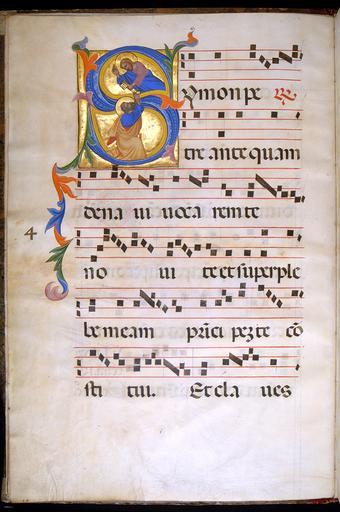 Symon pe R
tre ante quam
de na ui uoca rem te
4
no ui te et super ple
bem meam princi pem te co
sti tui. Et cla ues